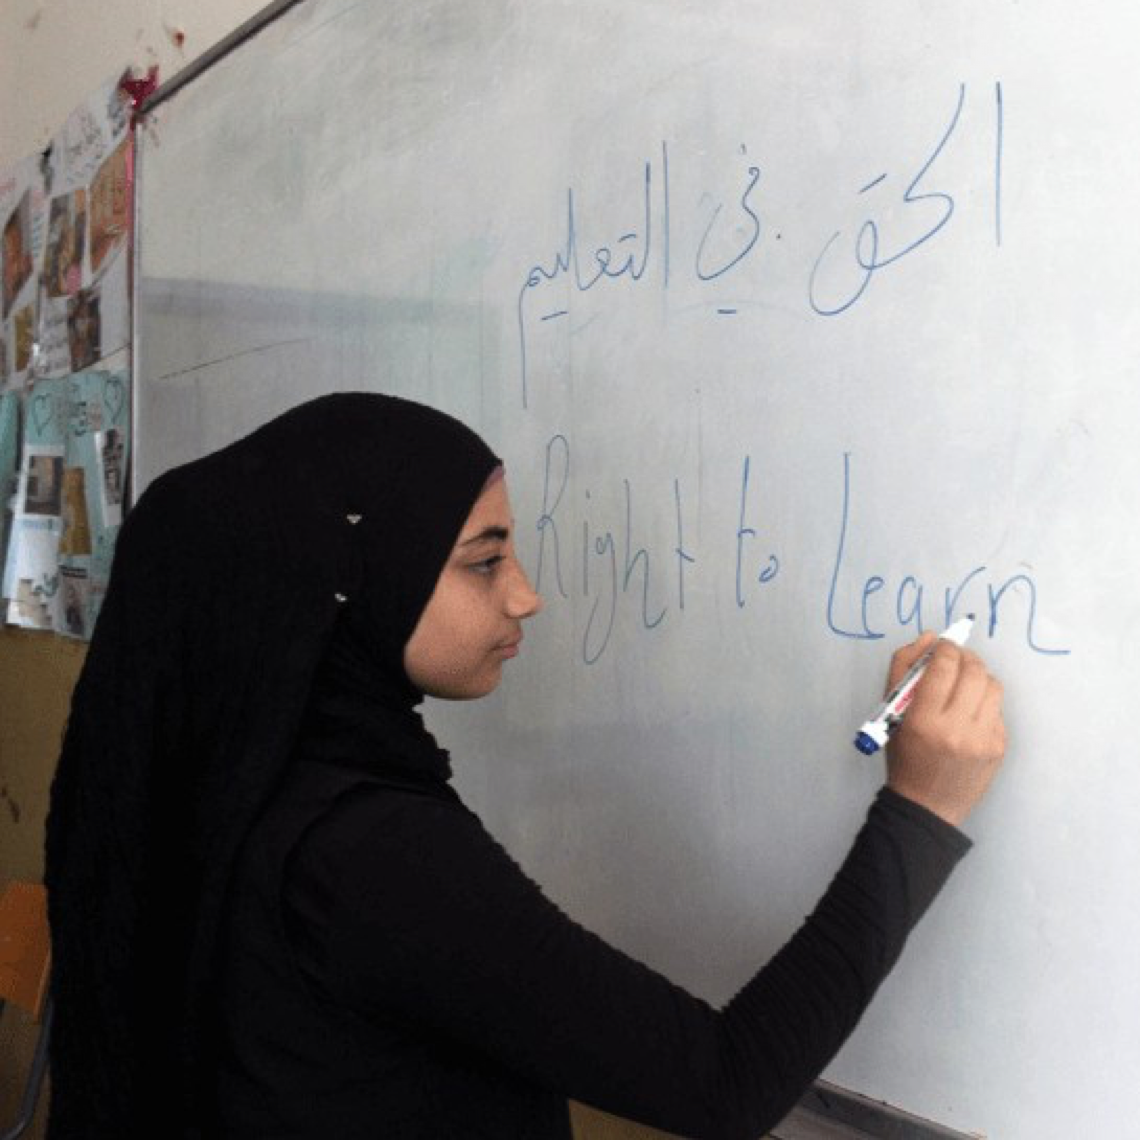 الحق في التعليم
Right to Learn